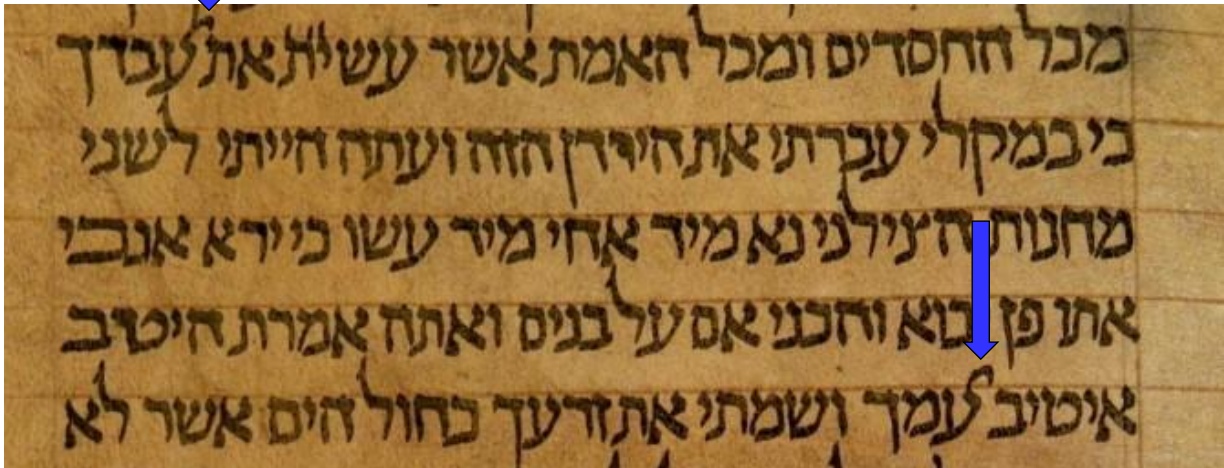 מכל החסדים ומכל האמת אשר עשית את עבדך
כי במקלי עברתי את הירדן הזה ועתה הייתי לשני
מחנות הצילני נא מיד אחי מיד עשו כי ירא אנכי
אתו פן יבוא והכני אם על בנים ואתה אמרת היטיב
איטיב עמך ושמתי את זרעך כחול הים אשר לא